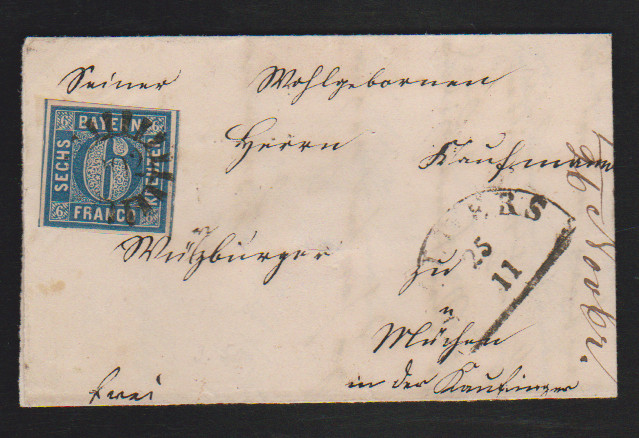 Seiner Wohlgebornen
Herrn Kaufmann
Wülzburger zu
Müchen
in der Kaufinger
frei
BAYERN
SECHS
6
FRANCO
6
6
RS
25
11
Novbr.